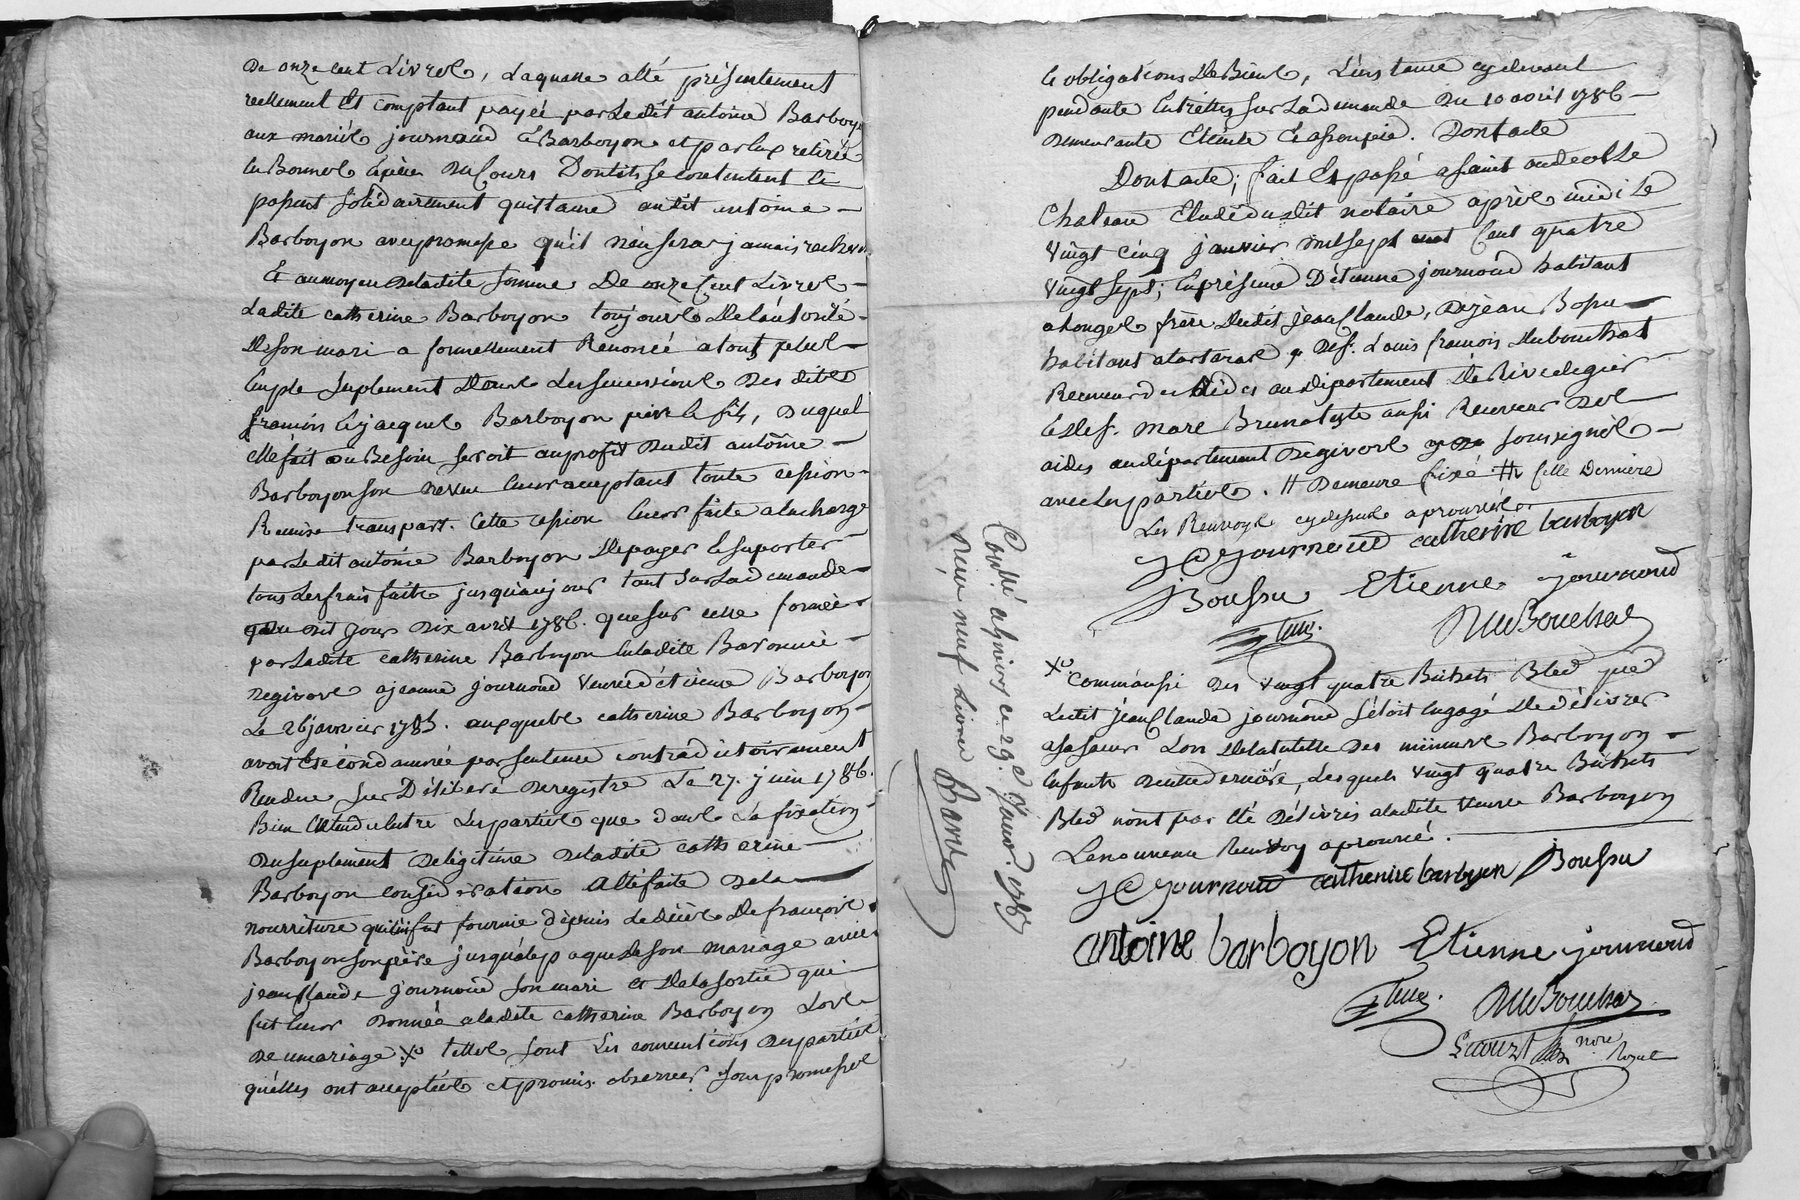 De onze Cent Livres, Laquelle a été présentement
reellement Et comptant payée par Ledit antoine Barboyon
aux mariés journoud & Barboyon et par eux retirée
en Bonnes Espèces Du Cours Dont ils se contentent Et
passent solidairement quittance audit antoine
Barboyon avec promesse qu'il n'en sera jamais recherché
Et au moyen de ladite somme De onze Cent Livres
Ladite catherine Barboyon toujours De L'autorité
De son mari a formellement Renoncé a tout plus
ample suplement Dans Les successions Des dits
françois & jacques Barboyon père & fils, Duquel
elle fait au Besoin seroit au profit Dudit antoine
Barboyon son neveu Encor acceptant toute cession
Remise transport. Cette cession Encor faite a la charge
par Ledit antoine Barboyon De payer & suporter
tous Les frais faits jusqu'a ce jour tant sur La demande
du dit jour Dix avril 1786. que sur celle formée
par Ladite catherine Barboyon En Ladite Baronnie
De givors a jeanne journoud veuve d'étienne Barboyon
Le 26 janvier 1785. auxquels catherine Barboyon
avoit été condamnée par sentence contradictoirement
Rendue sur Délibéré De registre Le 27. juin 1786.
Bien Entendu Entre Les parties que dans La fixation
Du suplement De légitime De ladite catherine
Barboyon considération a été faite De la
nourriture qui lui fut fournie depuis Le décès De françois
Barboyon son père jusqu'a l'epoque De son mariage avec
jean Claude journoud son mari et De la sortie qui
fut Encor Donnée a ladite catherine Barboyon Lors
De ce mariage X° telles sont Les conventions Des parties
qu'elles ont acceptées et promis observer sous promesses
Controllé a Givors ce 29.e Janv. 1787
Reçu neuf Livres Barde
& obligations De Biens, L'instance cy devant
pendante Entr'elles sur La demande Du 10 avril 1786
Demeurante Eteinte & assoupie. Dont acte
Dont acte; fait Et passé a saint andeol Le
Chateau Etude dudit notaire après midi Le
vingt cinq janvier mil sept cent quatre
vingt sept; En présence D'étienne journoud habitant
a Longes frère Dudit jean Claude, De jean Bossu
habitant a tartaras, De sr. Louis françois Dubouchat
Receveur des aides au Département De Rive de gier
& De sr. marc Brunat aussi Receveur Des
aides au département De givors soussignés
avec Les parties. # Demeure fixé # Cette Dernière
Les Renvoys cy dessus aprouvés
JC journoud catherine barboyon
Boussu Etienne journoud
Dubouchat
X° Comm'aussi Des vingt quatre Bichets Bled que
Ledit jean Claude journoud s'étoit Engagé De délivrer
a sa sœur Lors De la tutelle Des mineurs Barboyon
Enfants De cette dernière, Lesquels vingt quatre Bichets
Bled n'ont pas été Délivrés a ladite veuve Barboyon
Le nouveau Renvoy aprouvé.
JC journoud catherine barboyon Boussu
antoine barboyon Etienne journoud
Dubouchat
nore Royal